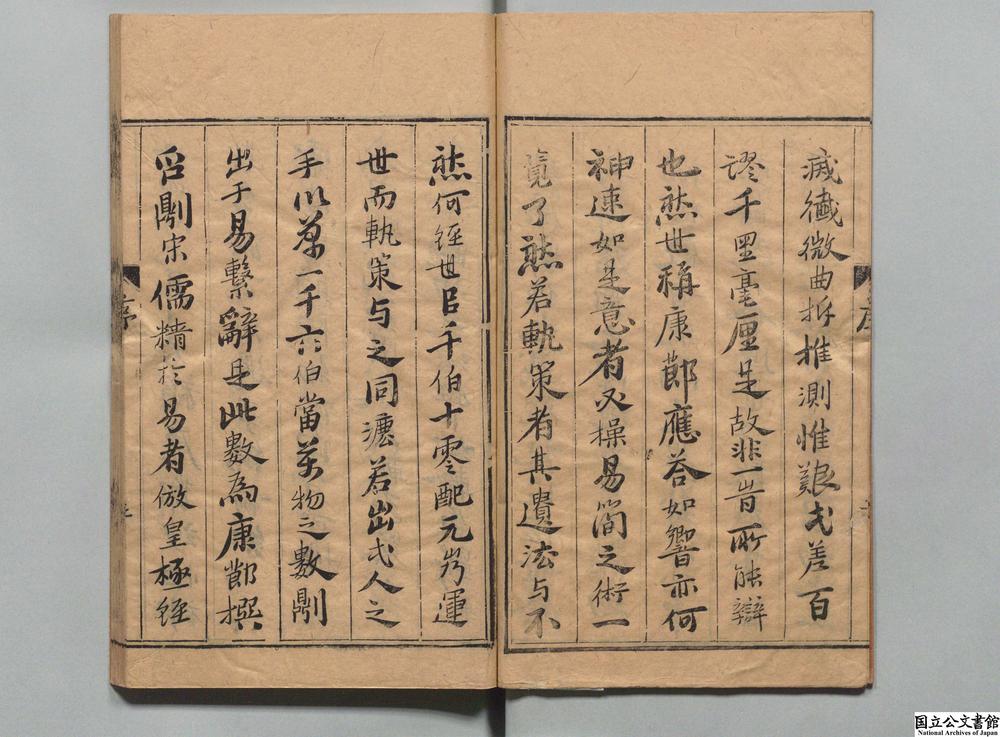 纖微曲折推測惟艱弌差百
謬千里毫厘是故非一皆所能辯
也然世稱康節應答如響亦何
神速如是意者必操易簡之術一
覽了然若執策者其遺法与不
然何經世㠯千伯十零配元岁運
世而執策与之同灋若出弌人之
手以萬一千六伯當萬物之數則
出于易繫辭是此數為康節撰
㠯則宋儒精於易者倣皇極經
序
序
国立公文書館
National Archives of Japan